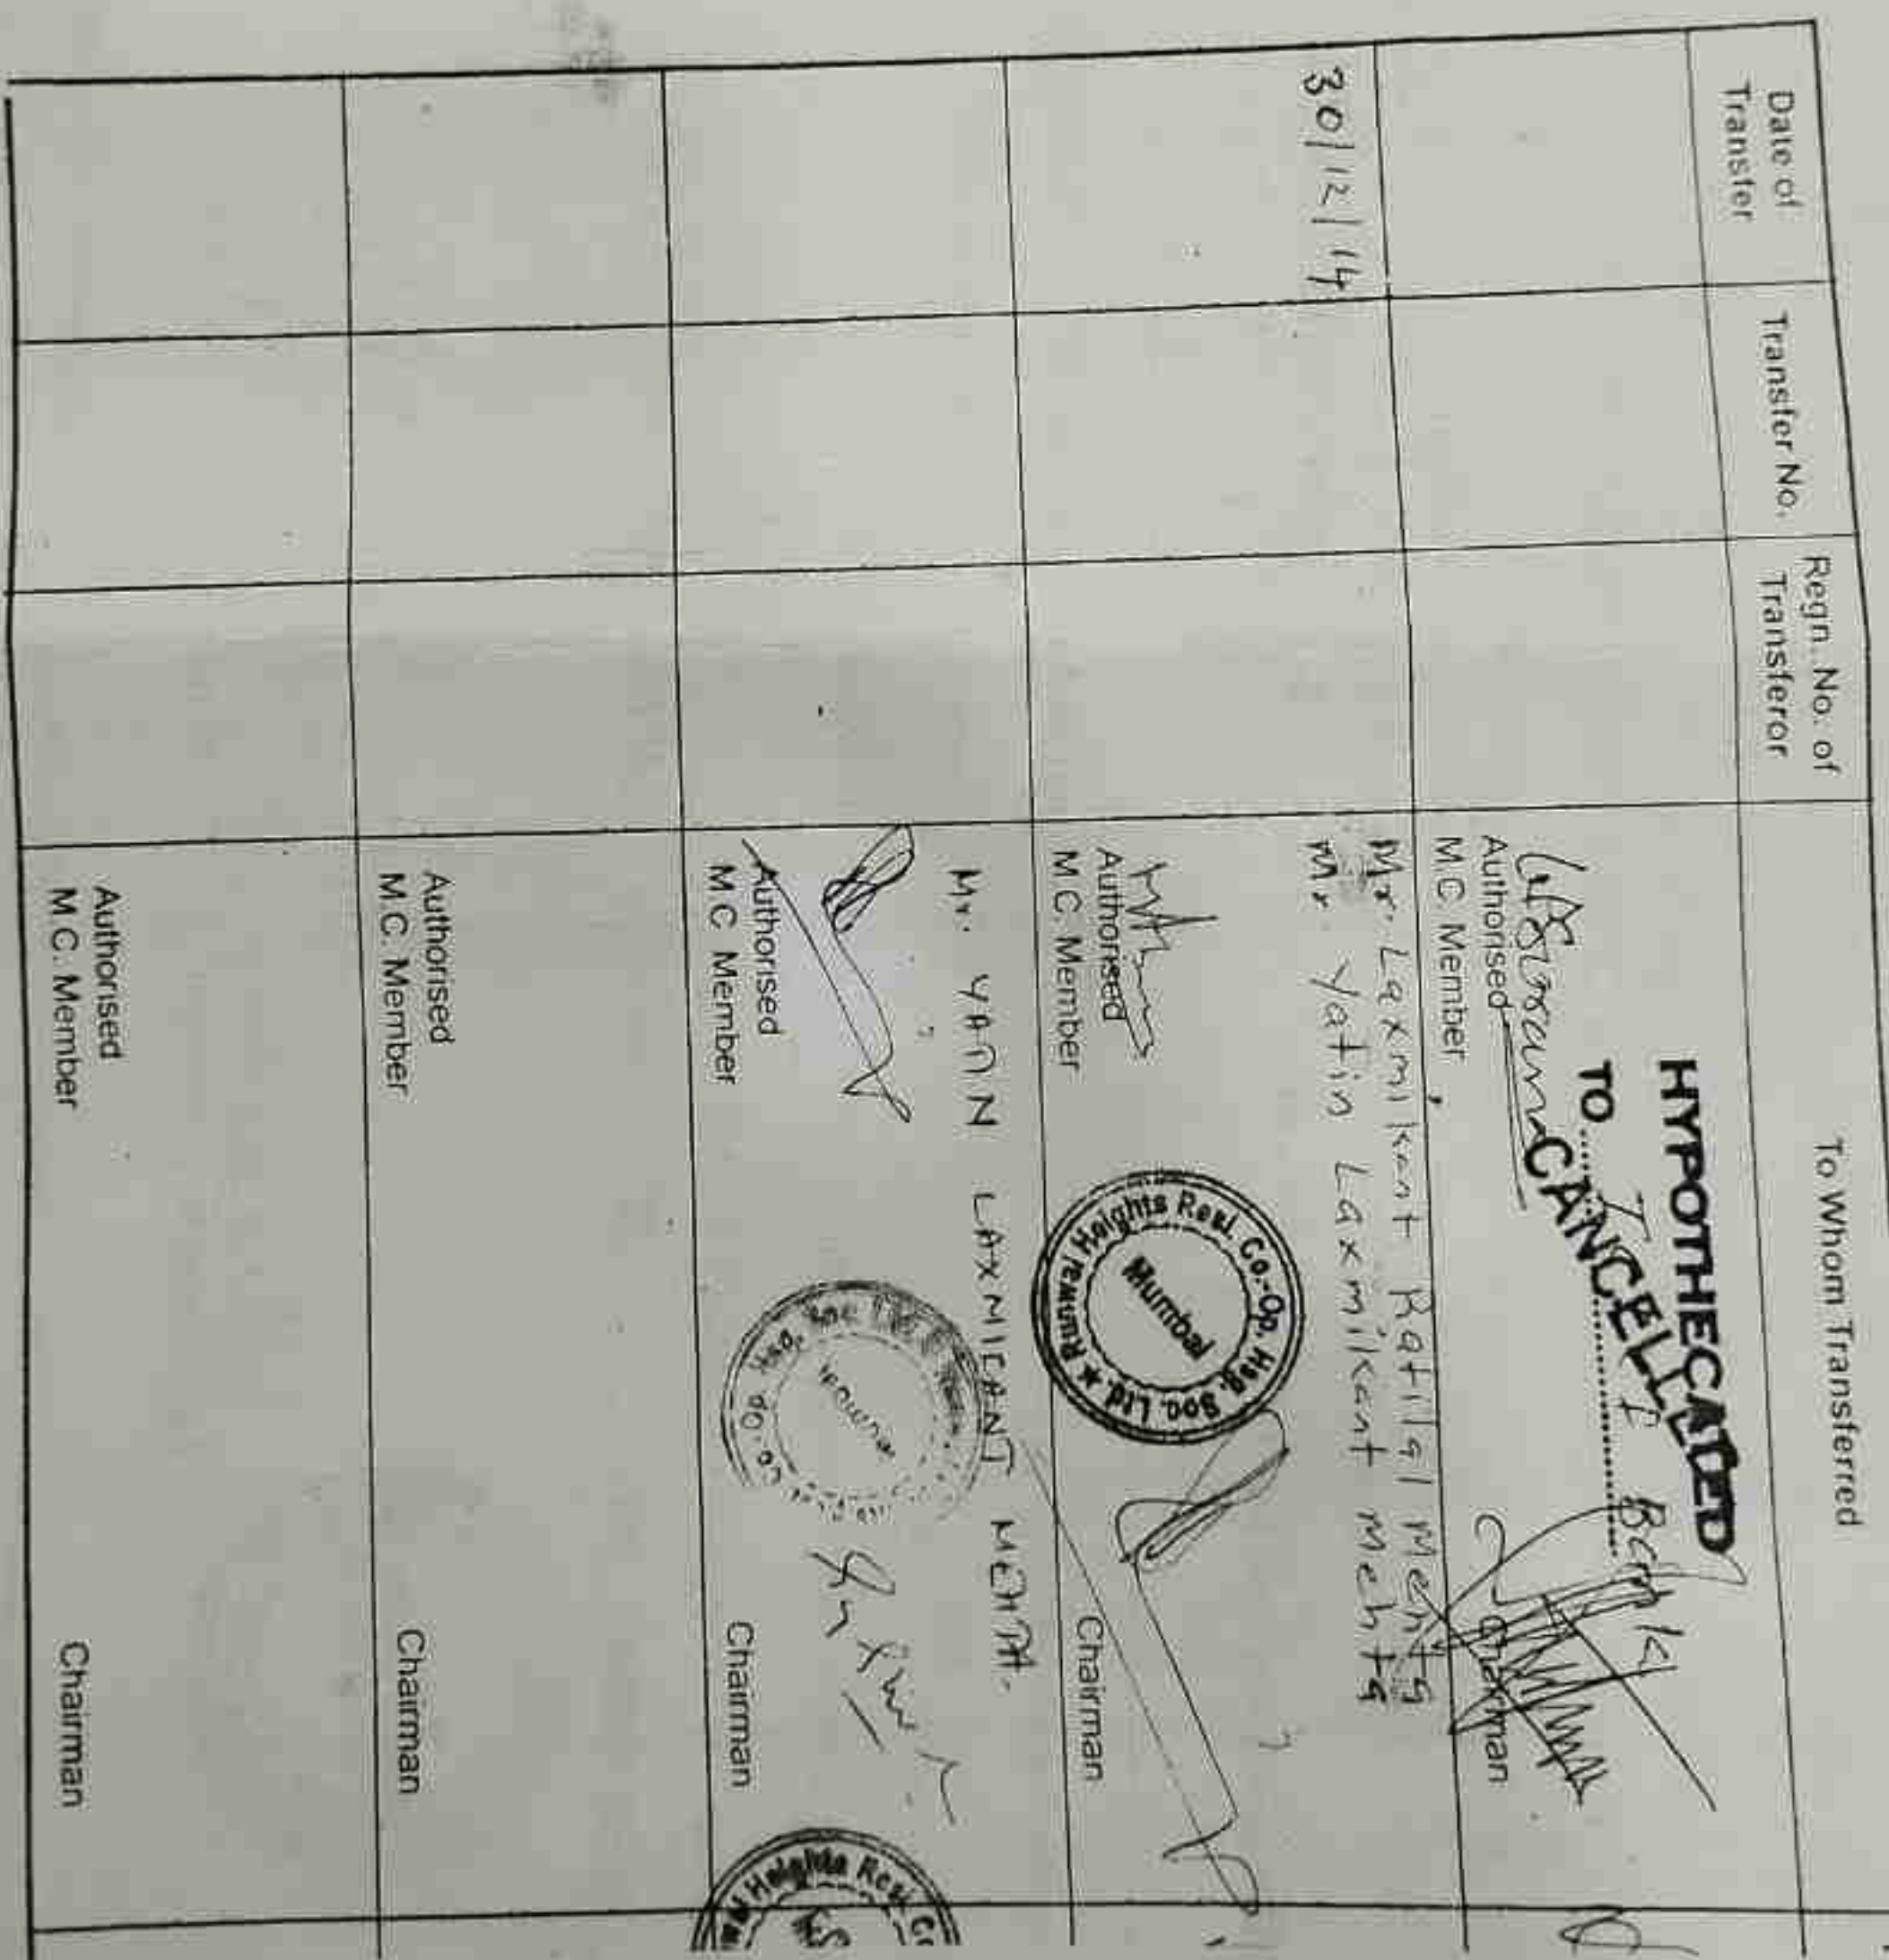 Date of
Transfer
Transfer No.
Regn. No. of
Transferor
To Whom Transferred
HYPOTHECATED
TO Bank
CANCELLED
Authorised
M.C. Member
Chairman
30/12/14
Mr. Laxmikant Ratilal Mehta
Mr. Yatin Laxmikant Mehta
Authorised
M.C. Member
Runwal Heights Resl. Co.-Op. Hsg. Soc. Ltd. ★
Mumbai
Chairman
Mr. YATIN LAXMICANT MEHTA.
Authorised
M.C. Member
Co-op Hsg. Soc Ltd
Chairman
Heights Resl. Co
Authorised
M.C. Member
Chairman
Authorised
M.C. Member
Chairman